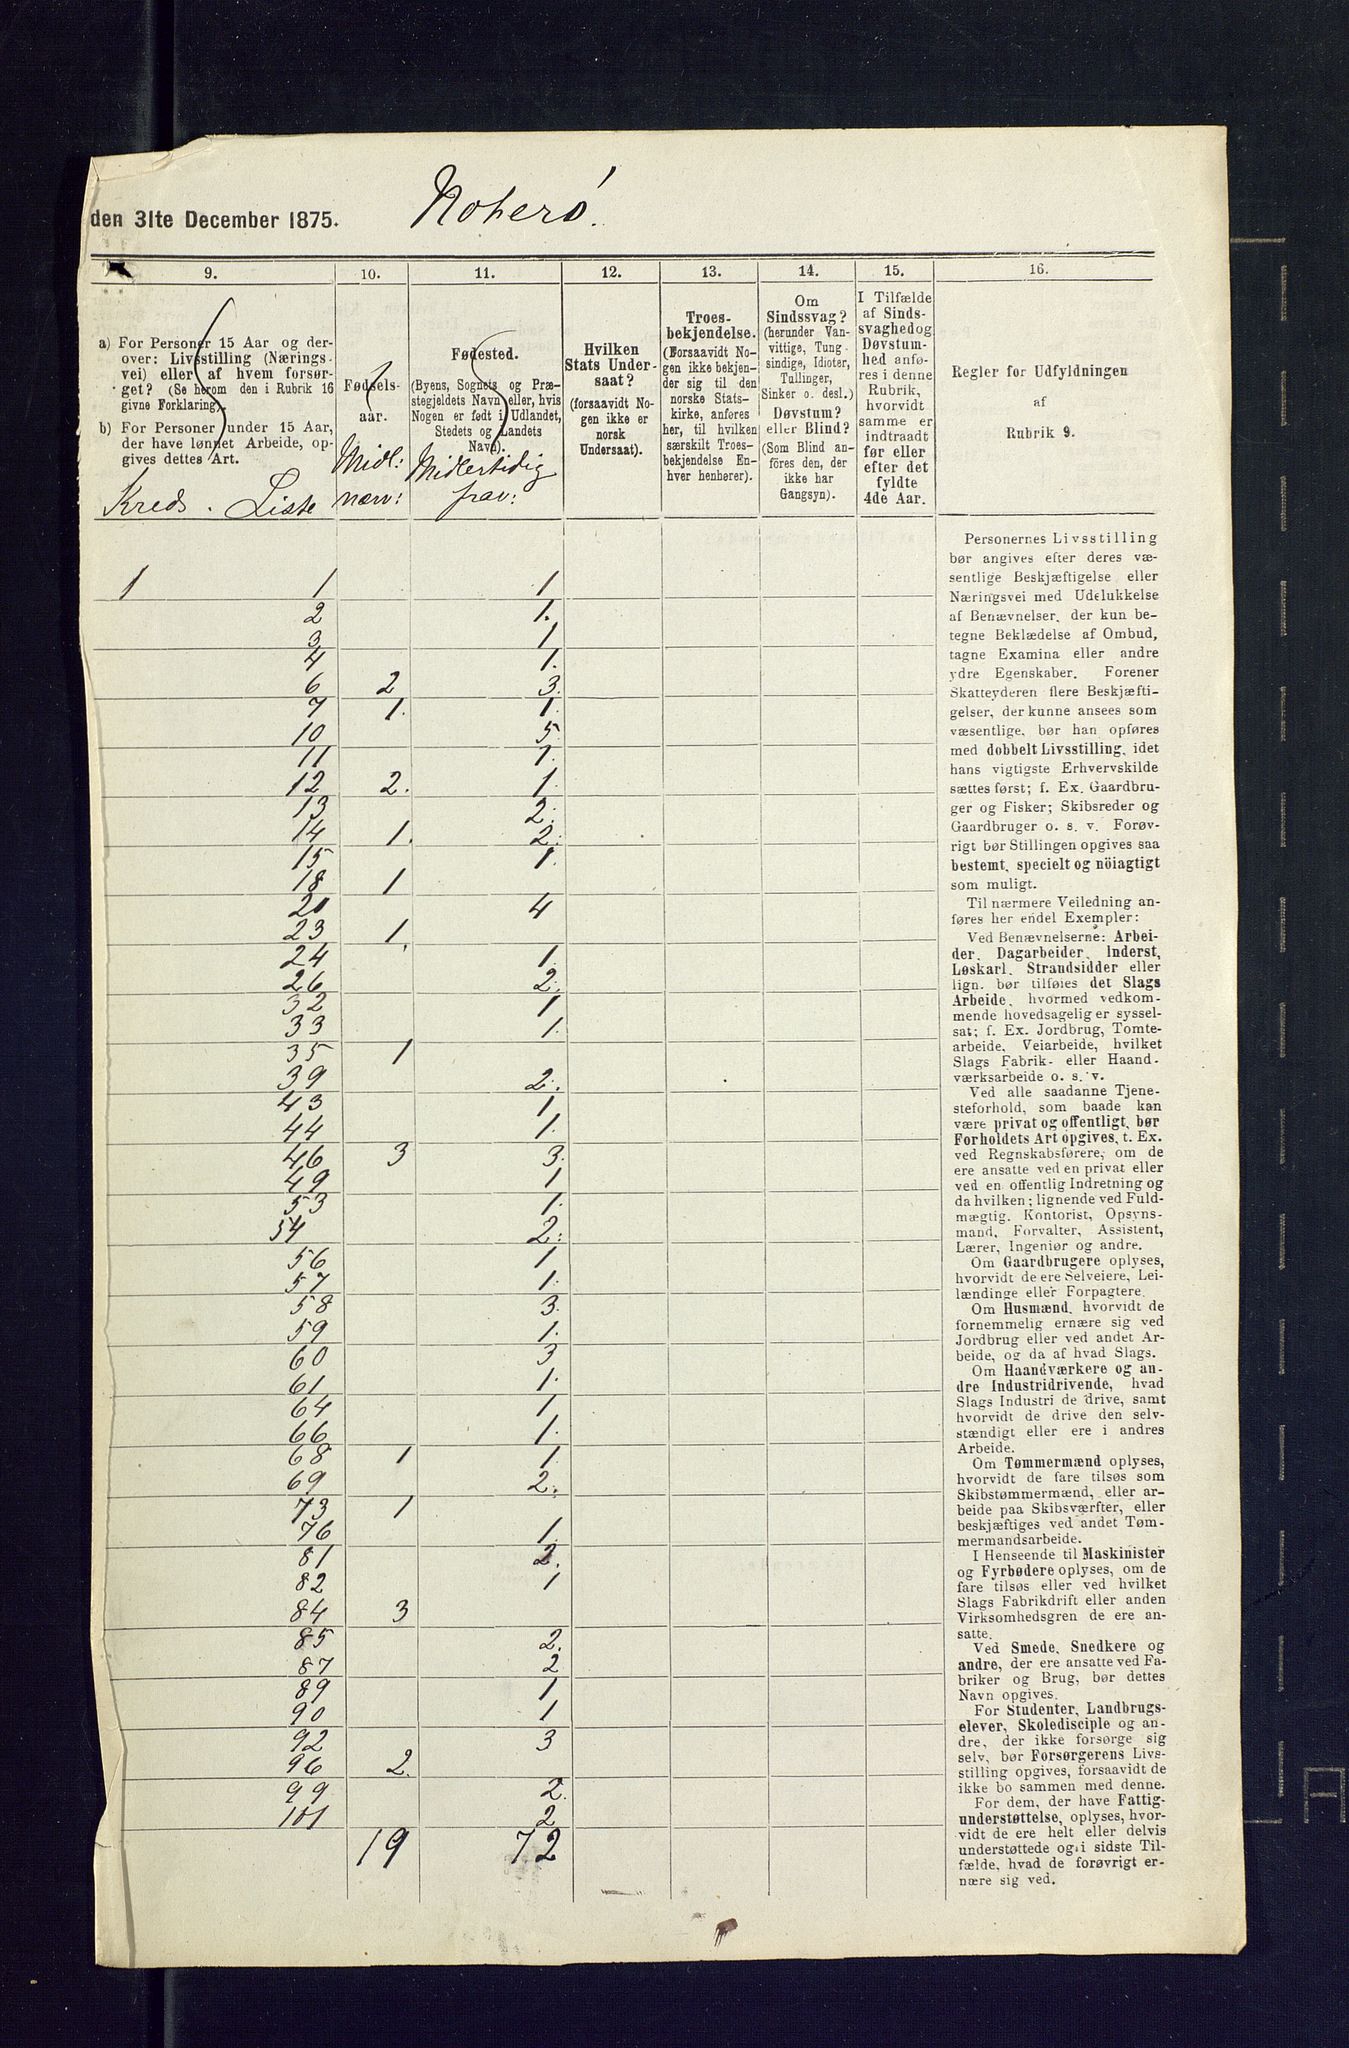 den 31te December 1875. Noterø.
9. 10. 11. 12. 13. 14. 15. 16.
a) For Personer 15 Aar og der-
over: Livsstilling (Nærings-
vei) eller af hvem forsør-
get? (Se herom den i Rubrik 16
givne Forklaring).
b) For Personer under 15 Aar,
der have lønnet Arbeide, op-
gives dettes Art.
Kreds. Liste
Fødsels-
aar.
Midl:
nærv:
Fødested.
(Byens, Sognets og Præ-
stegjeldets Navn eller, hvis
Nogen er født i Udlandet,
Stedets og Landets
Navn).
Midlertidig
frav:
Hvilken
Stats Under-
saat?
(forsaavidt No-
gen ikke er
norsk
Undersaat).
Troes-
bekjendelse.
(Forsaavidt No-
gen ikke bekjen-
der sig til den
norske Stats-
kirke, anføres
her, til hvilken
særskilt Troes-
bekjendelse En-
hver henhører).
Om
Sindssvag?
(herunder Van-
vittige, Tung-
sindige, Idioter,
Tullinger,
Sinker o. desl.)
Døvstum?
eller Blind?
(Som Blind an-
føres den, der
ikke har
Gangsyn).
I Tilfælde
af Sinds-
svaghed og
Døvstum-
hed anfø-
res i denne
Rubrik,
hvorvidt
samme er
indtraadt
før eller
efter det
fyldte
4de Aar.
Regler for Udfyldningen
af
Rubrik 9.
1 1 1
2 1.
3 1
4 1.
6 2 3.
7 1. 1.
10 5
11 1.
12 2. 1.
13 2.
14 1. 2.
15 1.
18 1
20 4
23 1.
24 1.
26 2.
32 1
33 1.
35 1
39 2.
43 1
44 1.
46 3 3.
49 1
53 1.
54 2.
56 1
57 1.
58 3.
59 1.
60 3
61 1.
64 1
66 1.
68 1 1
69 2.
73 1
76 1.
81 2.
82 1
84 3
85 2.
87 2
89 1
90 1
92 3
96 2.
99 2.
101 2
19 72
Personernes Livsstilling
bør angives efter deres væ-
sentlige Beskjæftigelse eller
Næringsvei med Udelukkelse
af Benævnelser, der kun be-
tegne Beklædelse af Ombud,
tagne Examina eller andre
ydre Egenskaber. Forener
Skatteyderen flere Beskjæfti-
gelser, der kunne ansees som
væsentlige, bør han opføres
med dobbelt Livsstilling, idet
hans vigtigste Erhvervskilde
sættes først; f. Ex. Gaardbru-
ger og Fisker; Skibsreder og
Gaardbruger o. s. v. Forøv-
rigt bør Stillingen opgives saa
bestemt, specielt og nöiagtigt
som muligt.
Til nærmere Veiledning an-
føres her endel Exempler:
Ved Benævnelserne: Arbei-
der, Dagarbeider, Inderst,
Løskarl, Strandsidder eller
lign. bør tilføies det Slags
Arbeide, hvormed vedkom-
mende hovedsagelig er syssel-
sat; f. Ex. Jordbrug, Tomte-
arbeide, Veiarbeide, hvilket
Slags Fabrik- eller Haand-
værksarbeide o. s. v.
Ved alle saadanne Tjene-
steforhold, som baade kan
være privat og offentligt, bør
Forholdets Art opgives, t. Ex.
ved Regnskabsførere, om de
ere ansatte ved en privat eller
ved en offentlig Indretning og
da hvilken; lignende ved Fuld-
mægtig, Kontorist, Opsyns-
mand, Forvalter, Assistent,
Lærer, Ingeniør og andre.
Om Gaardbrugere oplyses,
hvorvidt de ere Selveiere, Lei-
lændinge eller Forpagtere.
Om Husmænd, hvorvidt de
fornemmelig ernære sig ved
Jordbrug eller ved andet Ar-
beide, og da af hvad Slags.
Om Haandværkere og an-
dre Industridrivende, hvad
Slags Industri de drive, samt
hvorvidt de drive den selv-
stændigt eller ere i andres
Arbeide.
Om Tømmermænd oplyses,
hvorvidt de fare tilsøs som
Skibstømmermænd, eller ar-
beide paa Skibsværfter, eller
beskjæftiges ved andet Tøm-
mermandsarbeide.
I Henseende til Maskinister
og Fyrbødere oplyses, om de
fare tilsøs eller ved hvilket
Slags Fabrikdrift eller anden
Virksomhedsgren de ere an-
satte.
Ved Smede, Snedkere og
andre, der ere ansatte ved Fa-
briker og Brug, bør dettes
Navn opgives.
For Studenter, Landbrugs-
elever, Skoledisciple og an-
dre, der ikke forsørge sig
selv, bør Forsørgerens Livs-
stilling opgives, forsaavidt de
ikke bo sammen med denne.
For dem, der have Fattig-
understøttelse, oplyses, hvor-
vidt de ere helt eller delvis
understøttede og i sidste Til-
fælde, hvad de forøvrigt er-
nære sig ved.
A